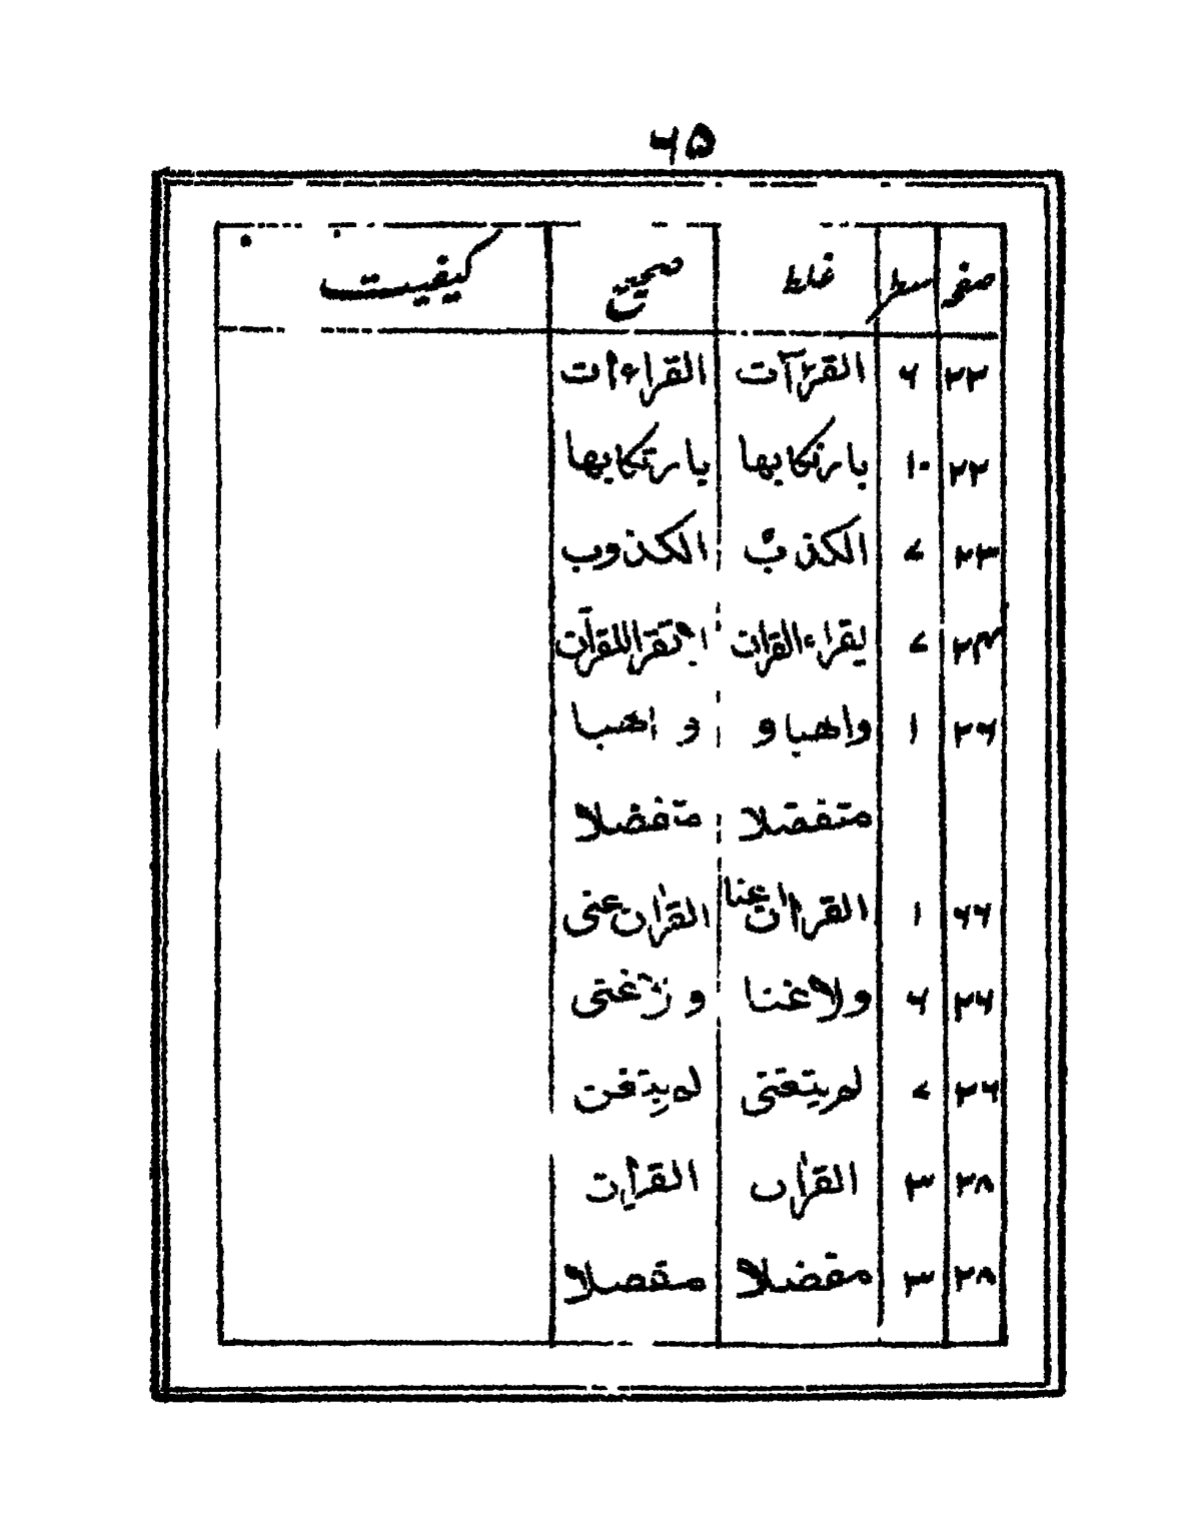 ۶۵
صفحہ سطر غلط صحیح کیفیت
۲۲ ۶ القرآت القراءات
۲۲ ۱۰ بارتكابها بارتكابها
۲۳ ۷ الكذبُ الكذوب
۲۴ ۷ يقراء القران
۲۶ ۱ واهبا و و اهبا
متفصلا متفضلا
۲۶ ۱ القران عنا القران عنى
۲۶ ۶ ولا غنا و غنى
۲۶ ۷ لم يتغنى لم يتغن
۲۸ ۳ القران القرأت
۲۸ ۳ مفضلا مفصلا